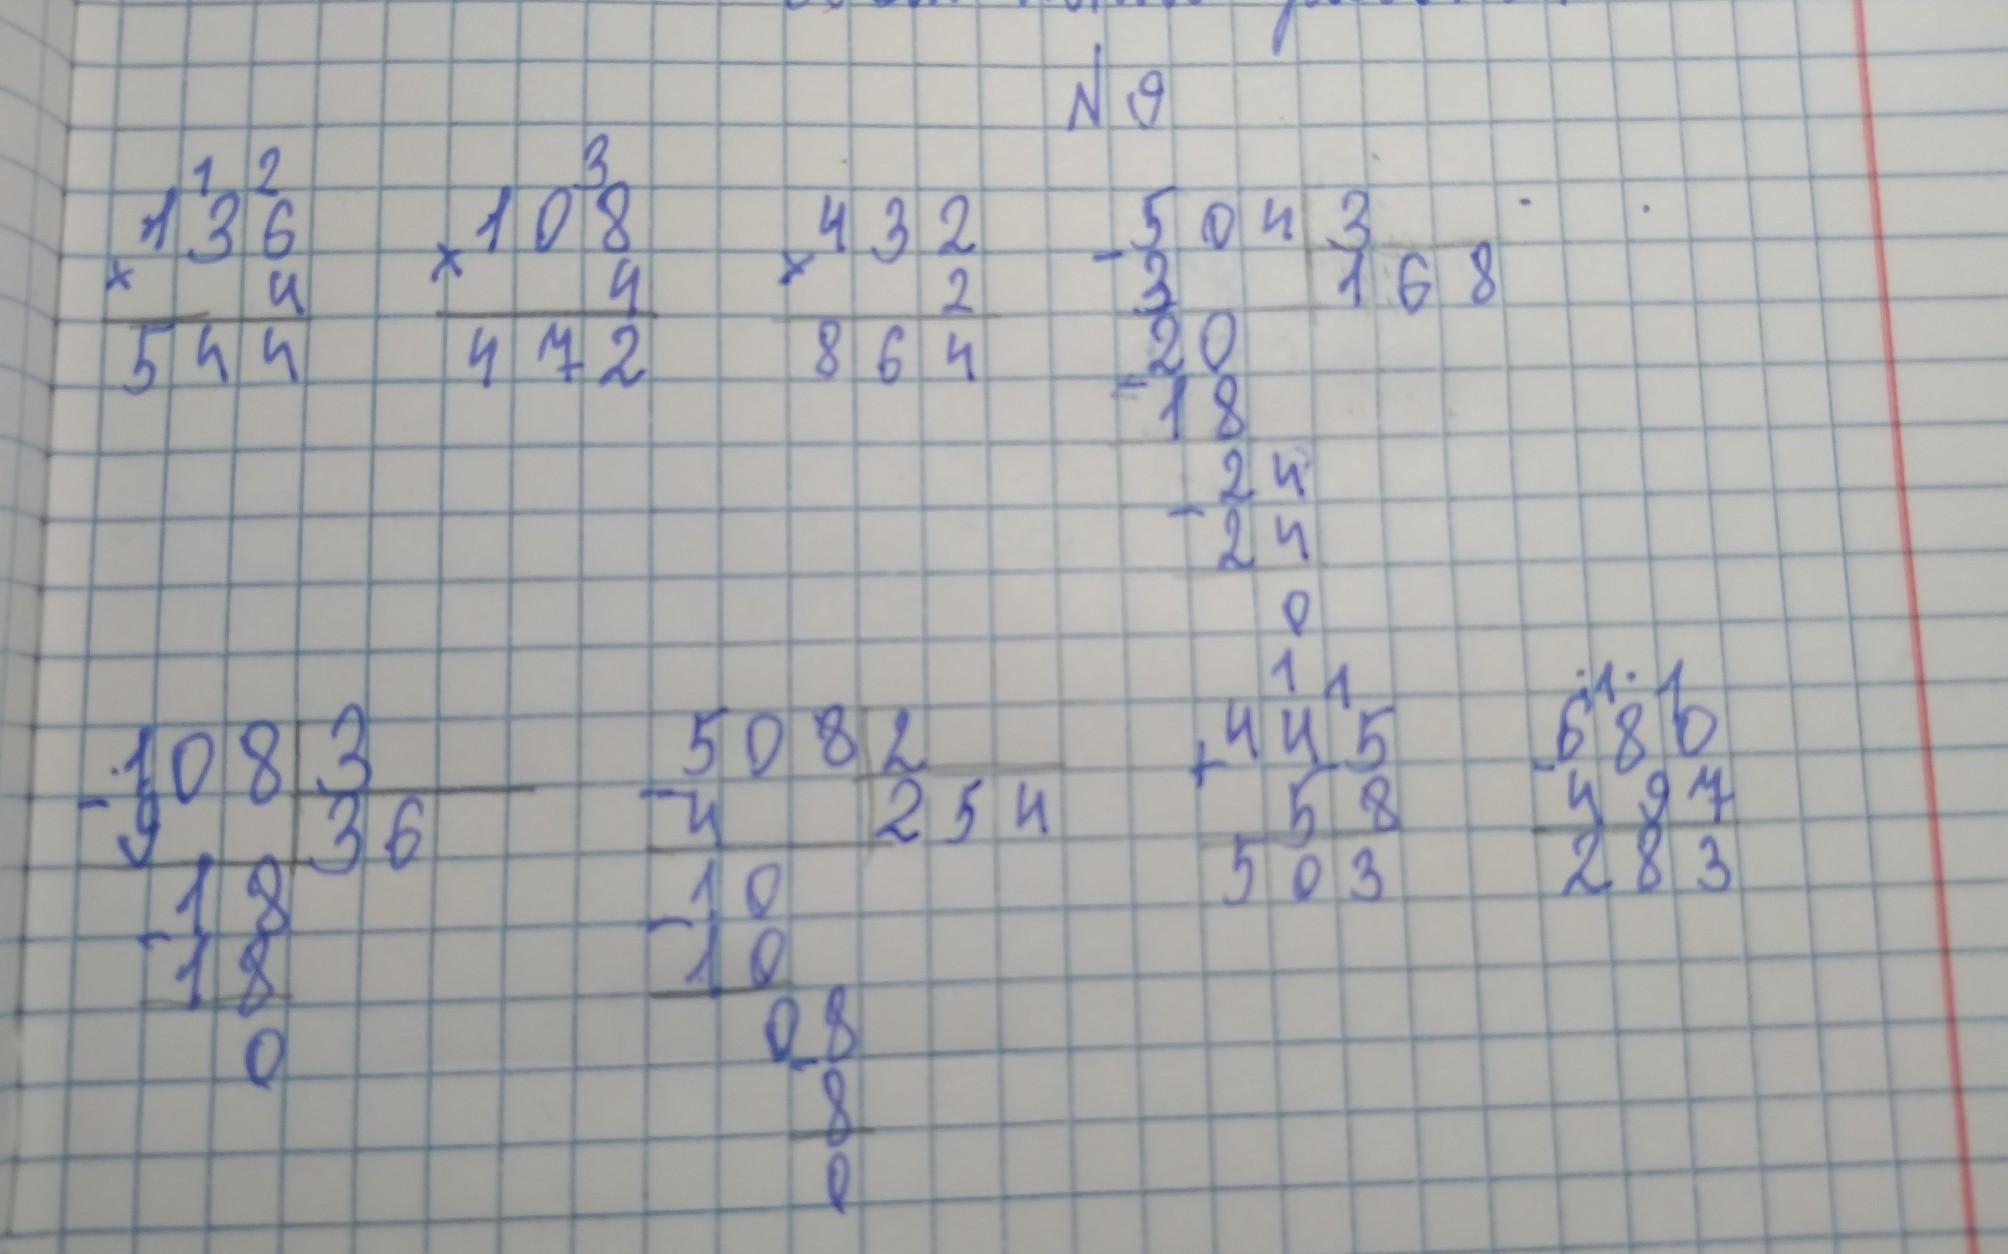 N 9
1 2
136
× 4
544
3
108
× 4
472
432
× 2
864
- 504 3
3 168
20
- 18
24
- 24
0
- 108 3
9 36
18
- 18
0
- 508 2
4 254
10
- 10
08
- 8
0
1 1
445
+ 58
503
. 1 . 1
- 680
497
283